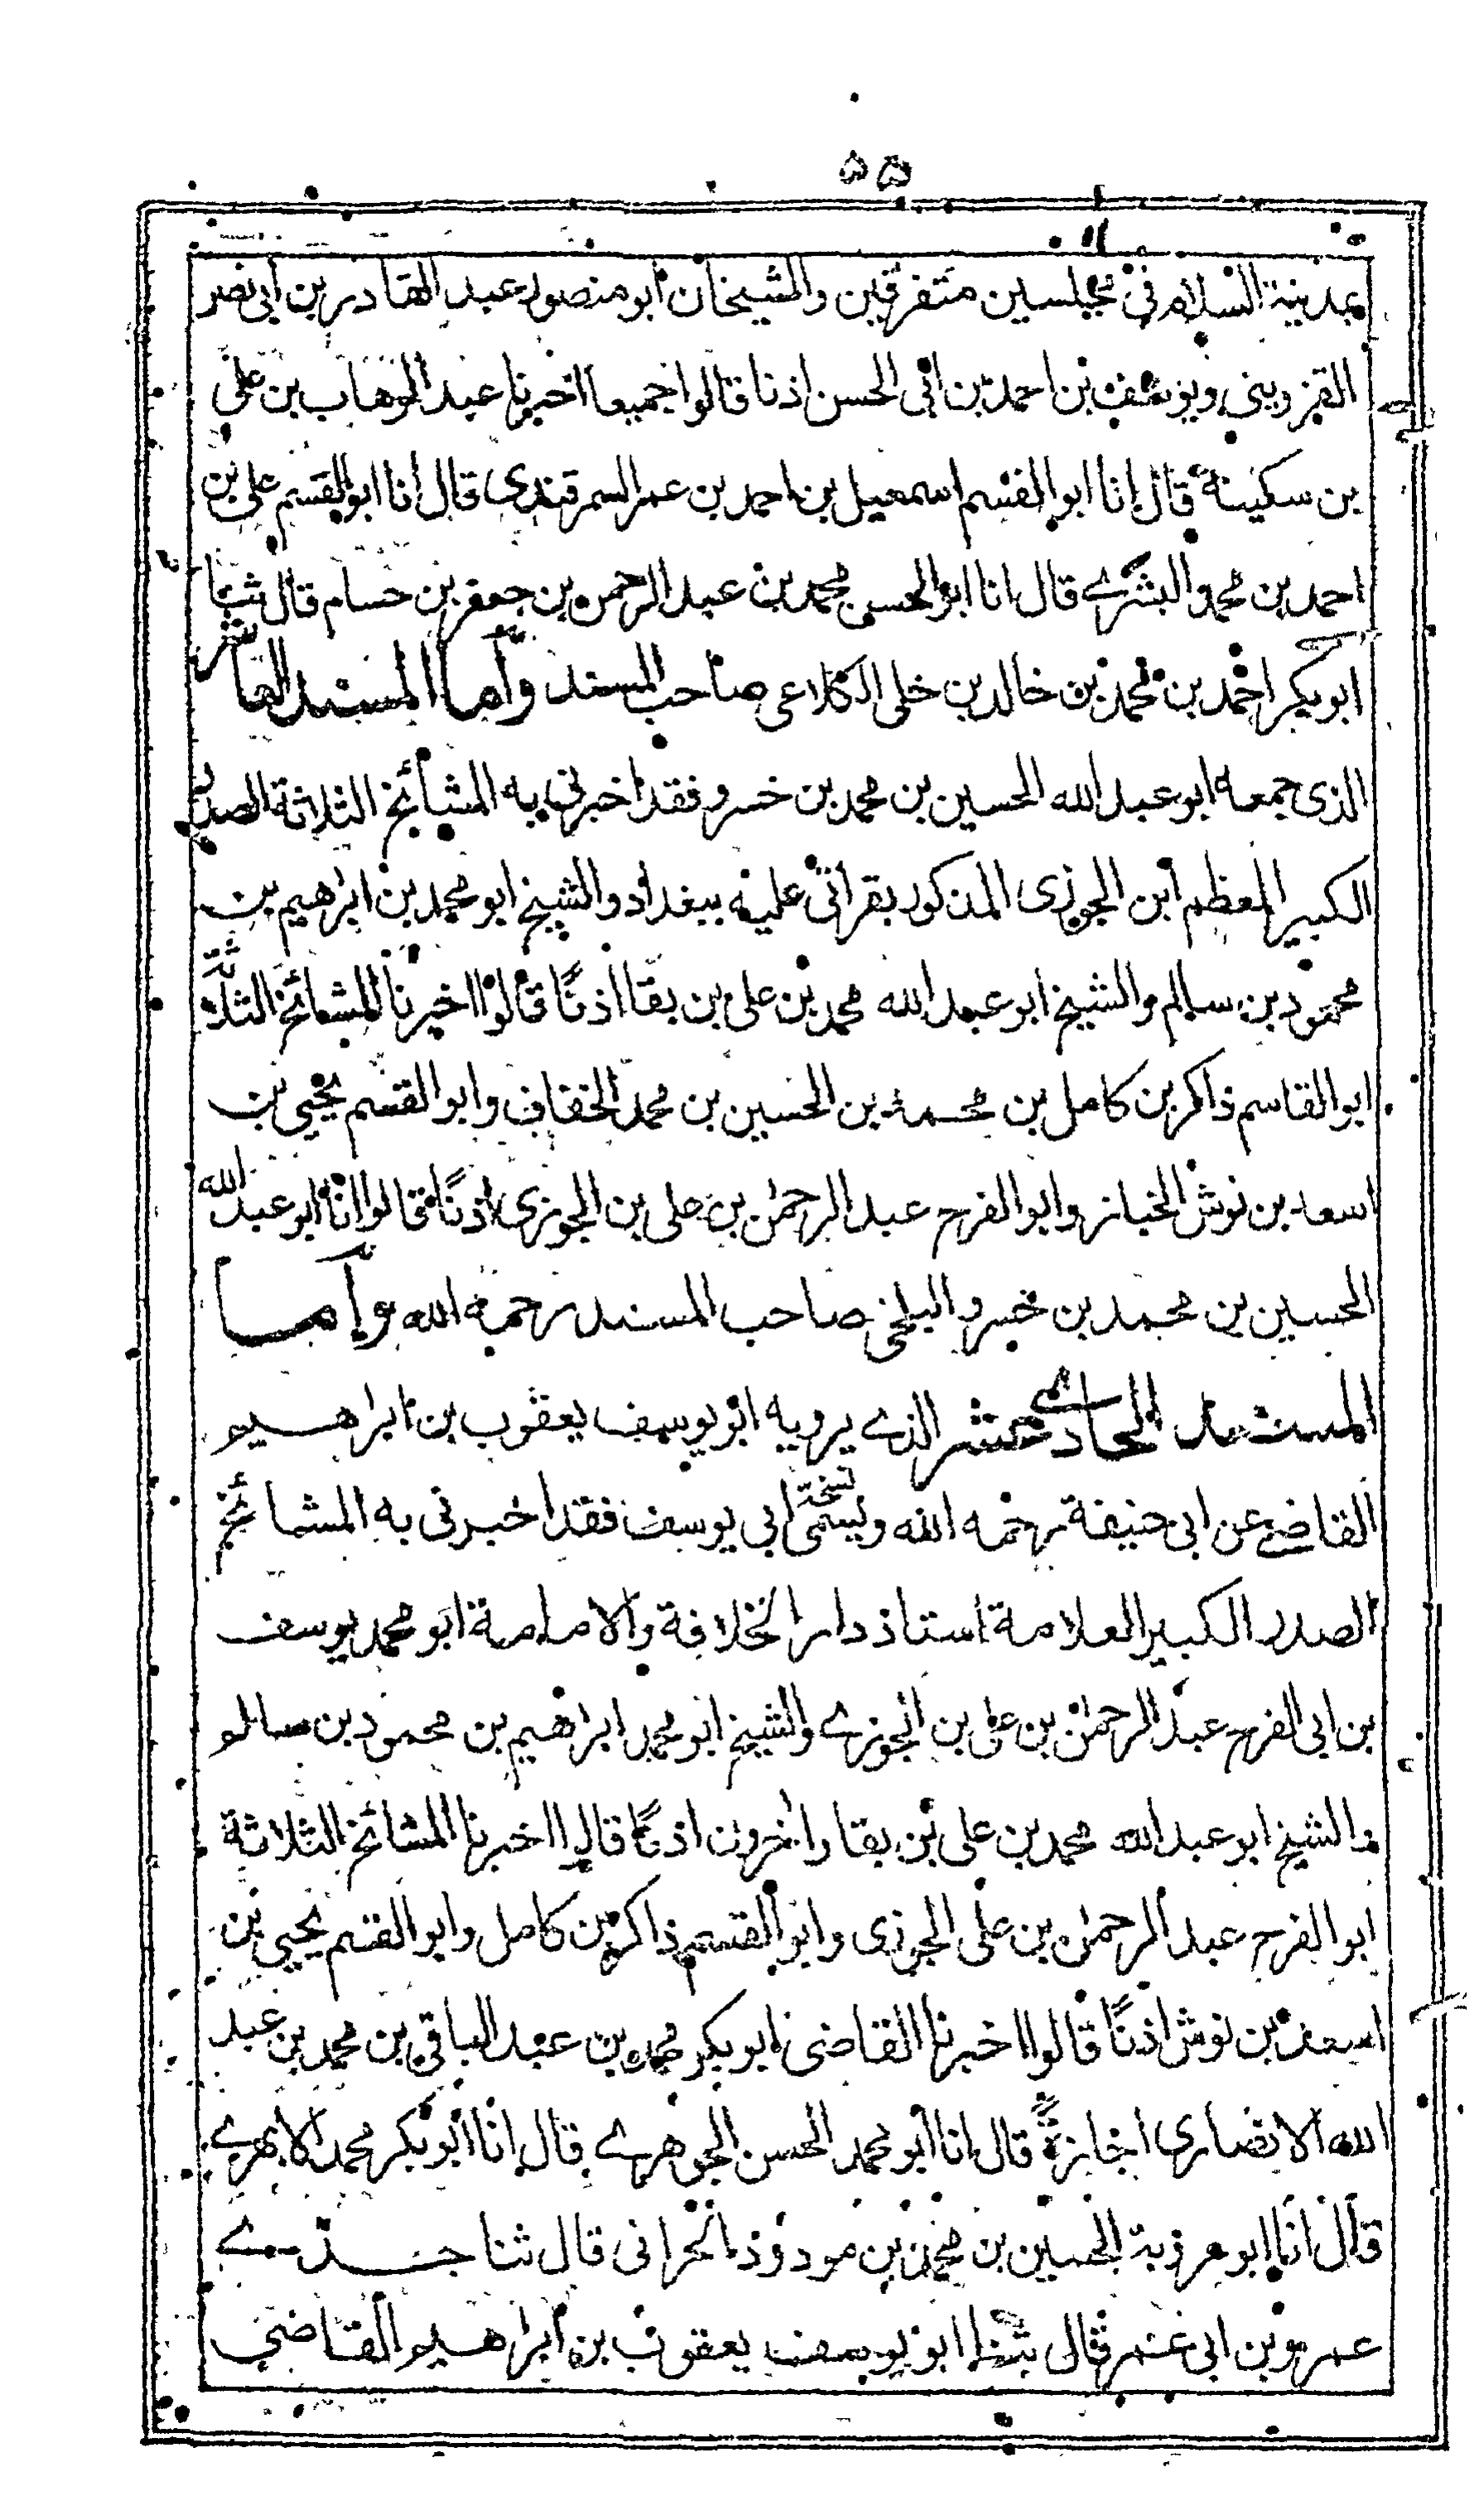 ۵۵
بمدينة السلام في مجلسين متفرقين والشيخان أبو منصور عبد القادر بن أبي نصر
القزويني ويوسف بن احمد بن ابى الحسن اذنا قالوا جميعا اخبرنا عبد الوهاب بن على
بن سكينة قال انا ابو القسم اسمعيل بن احمد بن عمر السمرقندى قال انا ابو القسم على بن
احمد بن محمد البشرى قال انا ابو الحسن محمد بن عبد الرحمن بن جعفر بن حسام قال ثنا
ابو بكر احمد بن محمد بن خالد بن خلى الكلاعى صاحب المسند وأما المسند العاشر
الذى جمعه ابو عبد الله الحسين بن محمد بن خسرو فقد اخبرنى به المشائخ الثلاثة الصدر
الكبير المعظم ابن الجوزى المذكور بقرائى عليه ببغداد والشيخ ابو محمد بن ابراهيم بن
محمود بن سالم والشيخ ابو عبد الله محمد بن على بن بقا اذنًا قالوا اخبرنا المشائخ الثلثة
ابو القاسم ذاكر بن كامل بن محمد بن الحسين بن محمد الخفاف وابو القسم يحيى بن
اسعد بن نوش الخباز وابو الفرج عبد الرحمن بن على بن الجوزى اذنًا قالوا انا ابو عبد الله
الحسين بن محمد بن خسرو البلخى صاحب المسند رحمه الله وأما
المسند الحادى عشر الذى يرويه ابو يوسف يعقوب بن ابراهيم
القاضى عن ابى حنيفة رحمه الله ويسمى نسخة ابى يوسف فقد اخبرنى به المشائخ
الصدر الكبير العلامة استاذ دار الخلافة والامامة ابو محمد يوسف
بن ابى الفرج عبد الرحمن بن على بن الجوزى والشيخ ابو محمد ابراهيم بن محمود بن سالم
والشيخ ابو عبد الله محمد بن على بن بقا واخرون اذنًا قالوا اخبرنا المشائخ الثلاثة
ابو الفرج عبد الرحمن بن على الجوزى وابو القسم ذاكر بن كامل وابو القسم يحيى بن
اسعد بن نوش اذنًا قالوا اخبرنا القاضى ابو بكر محمد بن عبد الباقى بن محمد بن عبد
الله الانصارى اجازةً قال انا ابو محمد الحسن الجوهرى قال انا ابو بكر محمد الابهرى
قال انا ابو عروبة الحسين بن محمد بن مودود الحرانى قال ثنا جدى
عمرو بن ابى عمر قال ثنا ابو يوسف يعقوب بن ابراهيم القاضى